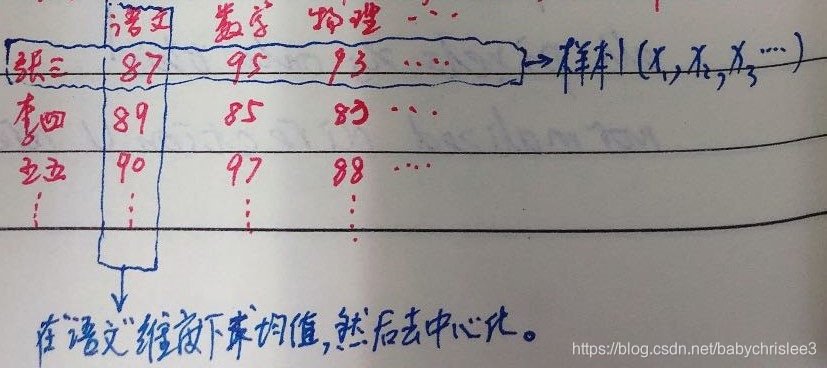 语文 数学 物理 ....
张三 87 95 93 .... → 样本1 (X1, X2, X3 ....)
李四 89 85 83 ....
王五 90 97 88 ....
在"语文"维度下求均值,然后去中心化。
https://blog.csdn.net/babychrislee3